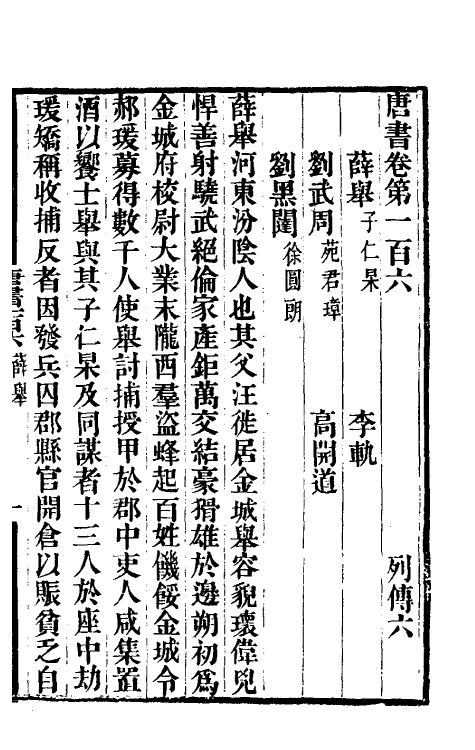 唐書卷第一百六 列傳六
薛舉子仁杲 李軌
劉武周苑君璋 高開道
劉黑闥徐圓朗
薛舉河東汾陰人也其父汪徙居金城舉容貌瓌偉兇
悍善射驍武絕倫家產鉅萬交結豪猾雄於邊朔初爲
金城府校尉大業末隴西羣盜蜂起百姓饑餒金城令
郝瑗募得數千人使舉討捕授甲於郡中吏人咸集置
酒以饗士舉與其子仁杲及同謀者十三人於座中劫
瑗矯稱收捕反者因發兵囚郡縣官開倉以賑貧乏自
唐書一百六 薛舉 一